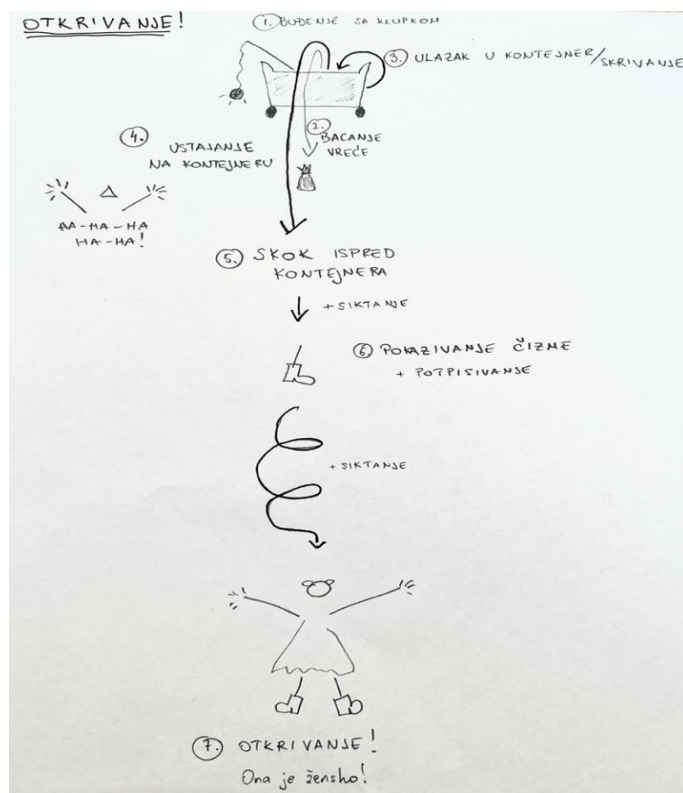 OTKRIVANJE!
1. BUĐENJE SA KLUPKOM
3. ULAZAK U KONTEJNER/SKRIVANJE
2. BACANJE
VREĆE
4. USTAJANJE
NA KONTEJNERU
HA-HA-HA
HA-HA!
5. SKOK ISPRED
KONTEJNERA
+ SIKTANJE
6 POKAZIVANJE ČIZME
+ POTPISIVANJE
+ SIKTANJE
7. OTKRIVANJE!
Ona je žensko!